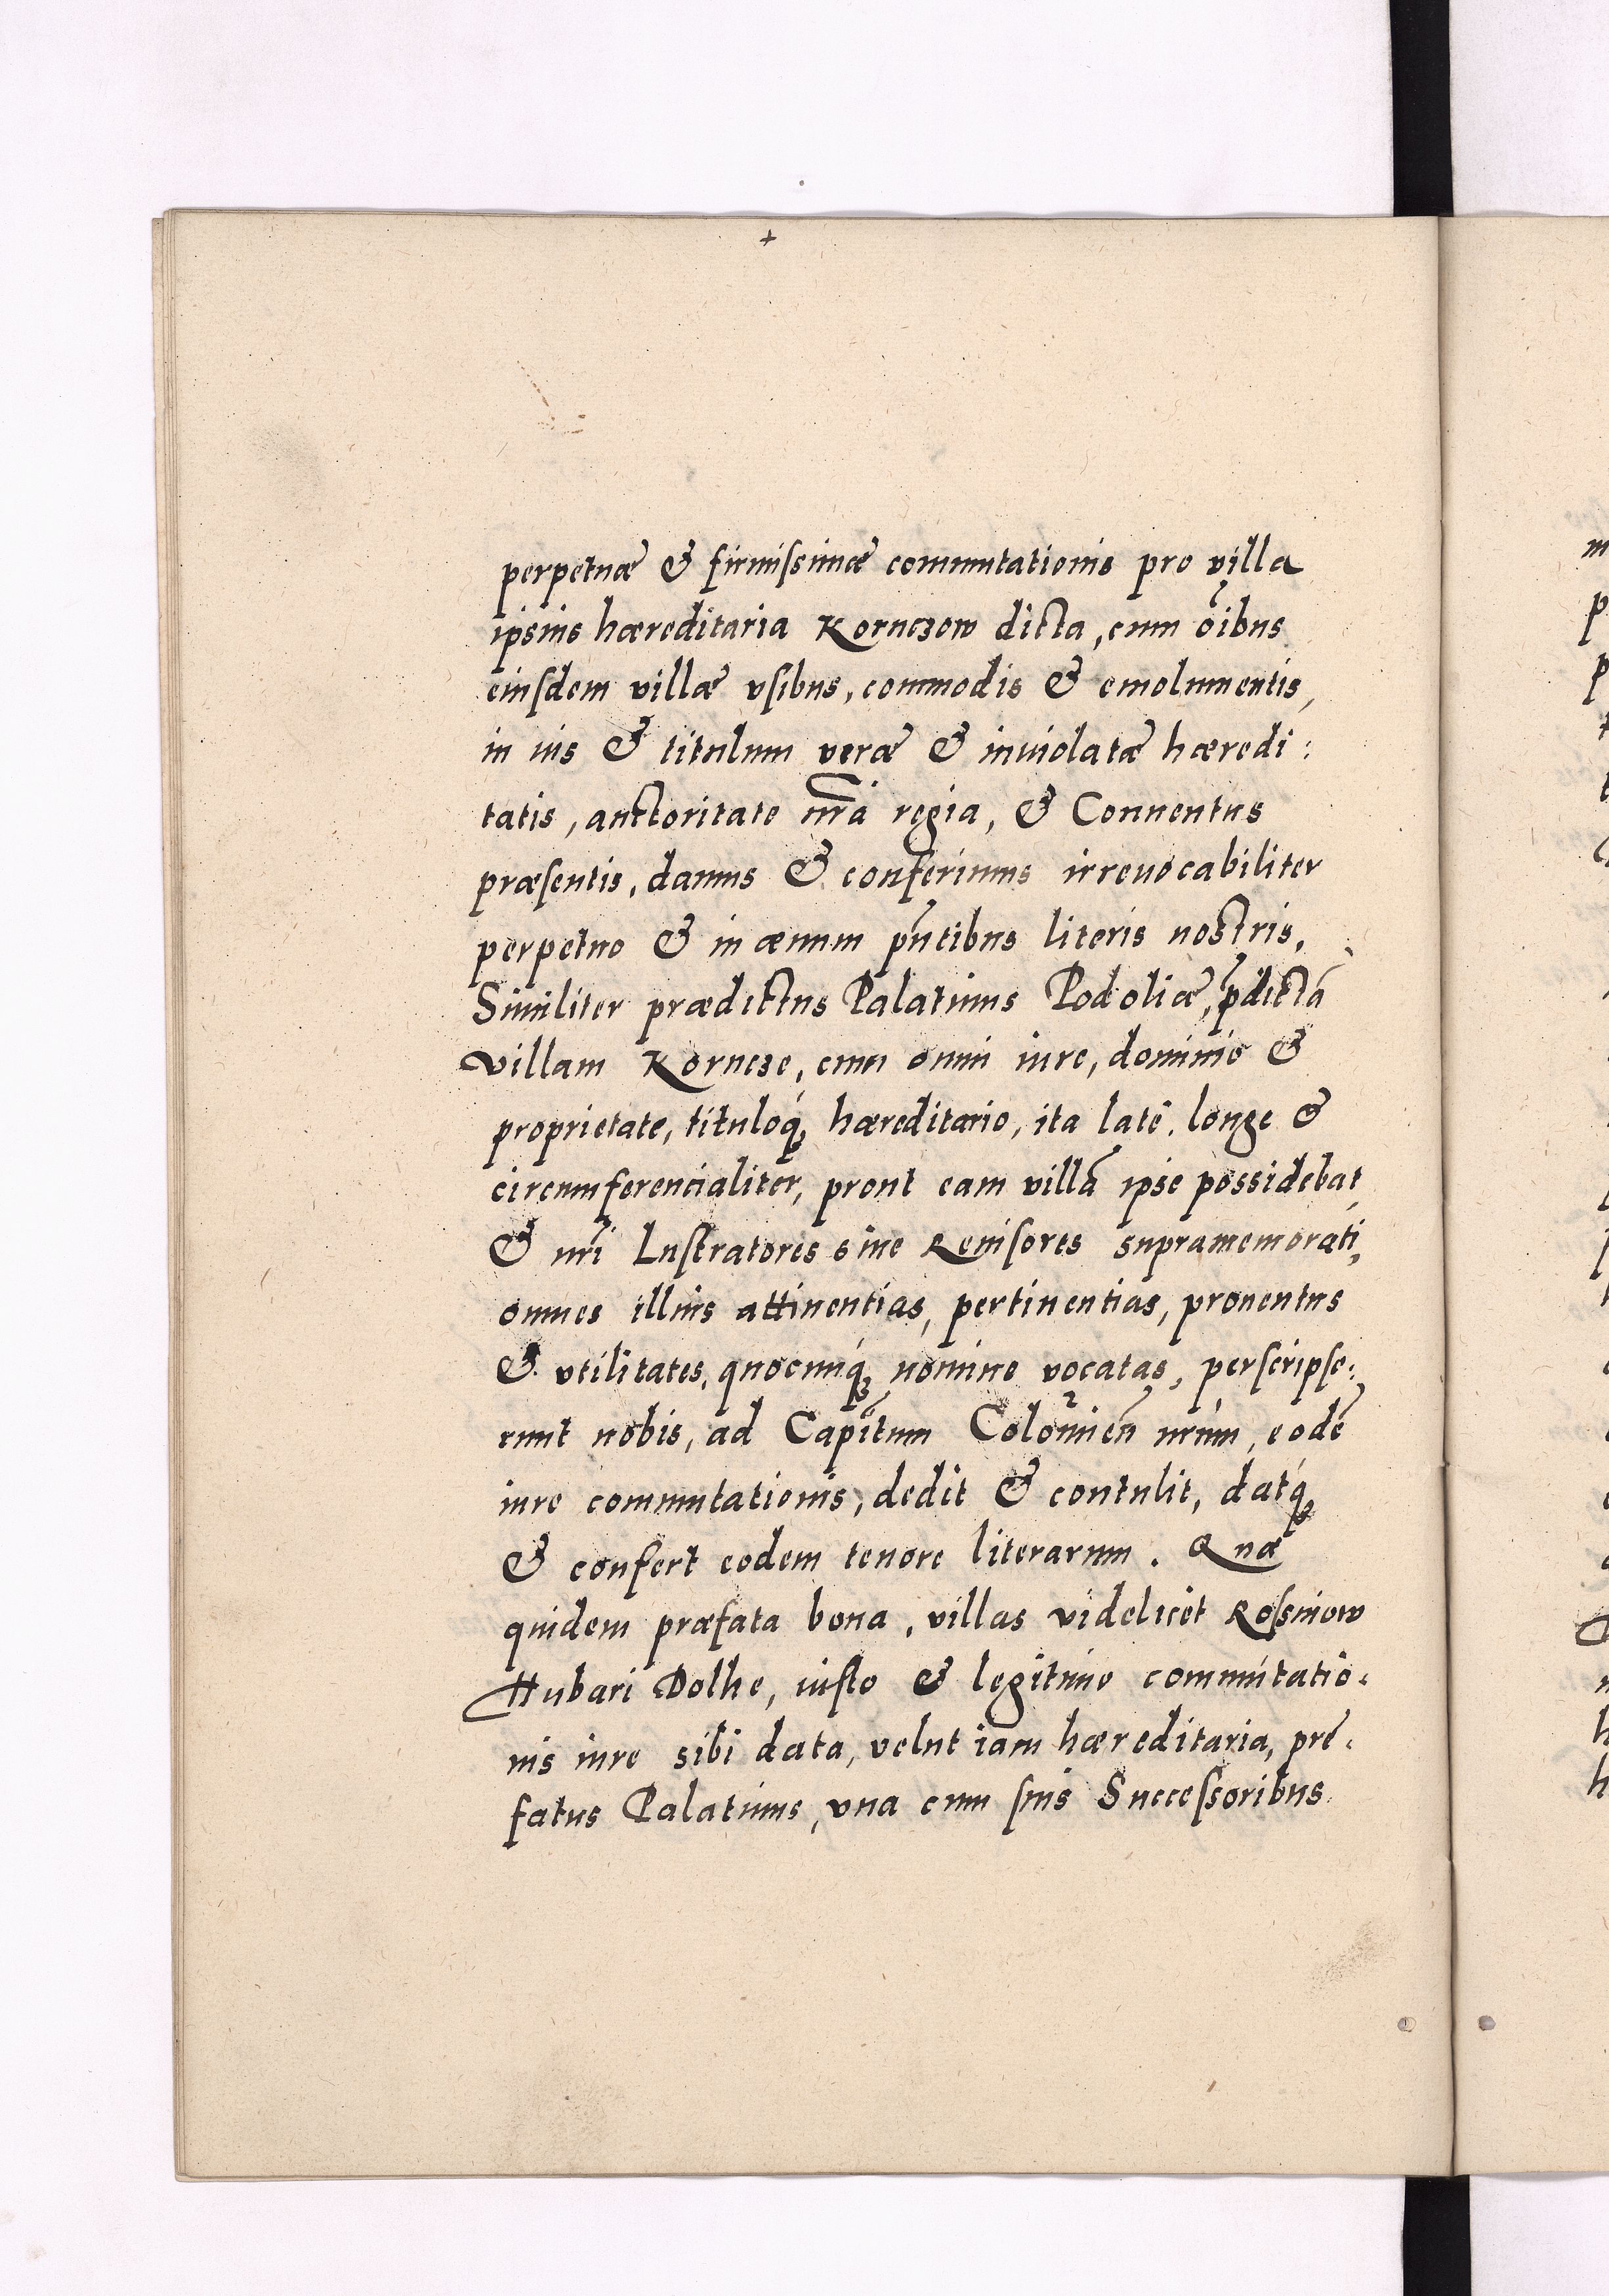 perpetuæ & firmissimæ commutationis pro villa
ipsius hæreditaria Korneзow dicta, cum oībus
eiusdem villæ vsibus, commodis & emolumentis,
in ius & titulum veræ & inuiolatæ hæredi:
tatis, auctoritate nr̄a regia, & Conuentus
præsentis, damus & conferimus irreuocabiliter
perpetuo & in æuum pn̄tibus literis nostris.
Similiter prædictus Palatinus Podoliæ, p̄dictā
villam Korneзe, cum omni iure, dominio &
proprietate, tituloq́ꝫ hæreditario, ita latè, longe &
circumferencialiter, prout eam villā ipse possidebat
& nr̄i Lustratores siue Reuisores supramemorati,
omnes illius attinentias, pertinentias, prouentus
& vtilitates, quocunq́ꝫ nomine vocatas, perscripse:
runt nobis, ad Capīt̄um Colomien̄ nr̄um, eodē
iure commutationis, dedit & contulit, datq́ꝫ
& confert eodem tenore literarum. Quæ
quidem præfata bona, villas videlicet Rosniow
Hubari Dolhe, iusto & legitimo commutatio-
nis iure sibi data, velut iam hæreditaria, pre-
fatus Palatinus, vna cum suis Successoribus